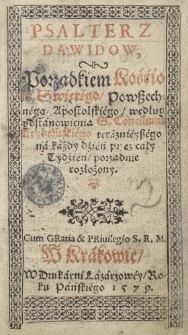 PSALTERZ
DAWIDOW,
Porządkiem Kościo
ła Swiętego/ Powßech
nego/ Apostolskiego/ według
postánowienia S. Concilium
Trydentskiego teráznieyßego
ná káżdy dzień przez cáły
Tydzień/ porządnie
rozłożony.
Cum GRatia & PRiuilegio S. R. M.
W Krákowie/
W Drukárni Łázárzowéy/ Ro-
ku Páńskiego 1579.